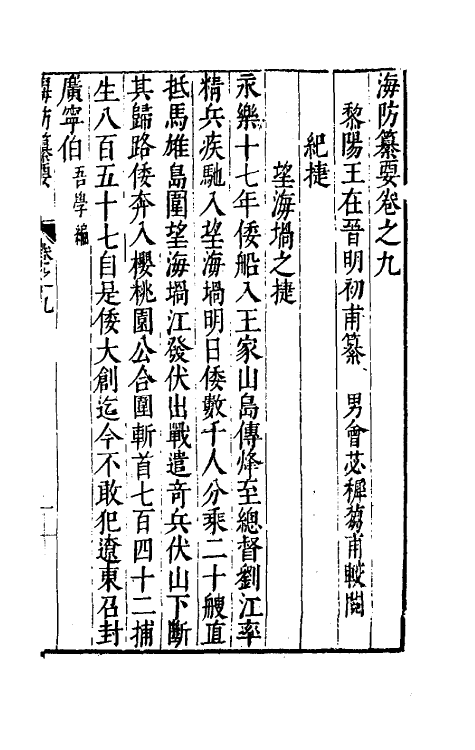 海防纂要卷之九
黎陽王在晉明初甫纂 男會苾穉芻甫較閱
紀捷
望海堝之捷
永樂十七年倭船入王家山島傳烽至總督劉江率
精兵疾馳入望海堝明日倭數千人分乘二十艘直
抵馬雄島圍望海堝江發伏出戰遣奇兵伏山下斷
其歸路倭奔入櫻桃園公合圍斬首七百四十二捕
生八百五十七自是倭大創迄今不敢犯遼東召封
廣寧伯吾學編
海防纂要 卷之九 一